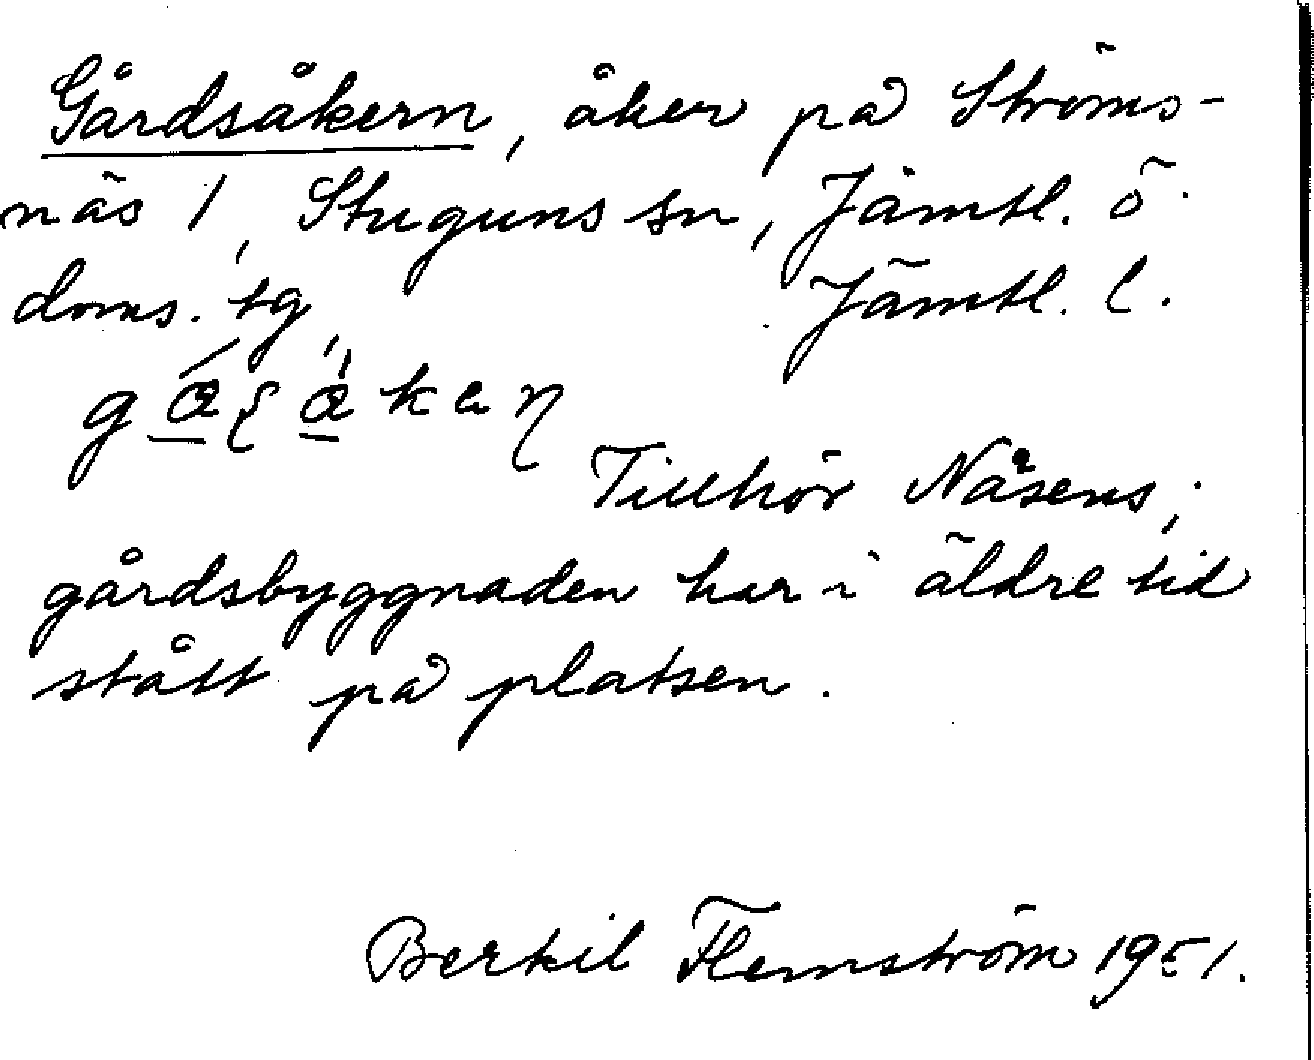 Gårdsåkern, åker på Ströms-
näs 1, Stuguns sn, Jämtl. ö.
doms. tg, Jämtl. l.
Tillhör Nåsens;
gårdsbyggnaden har i äldre tid
stått på platsen.
Bertil Flemström 1951.